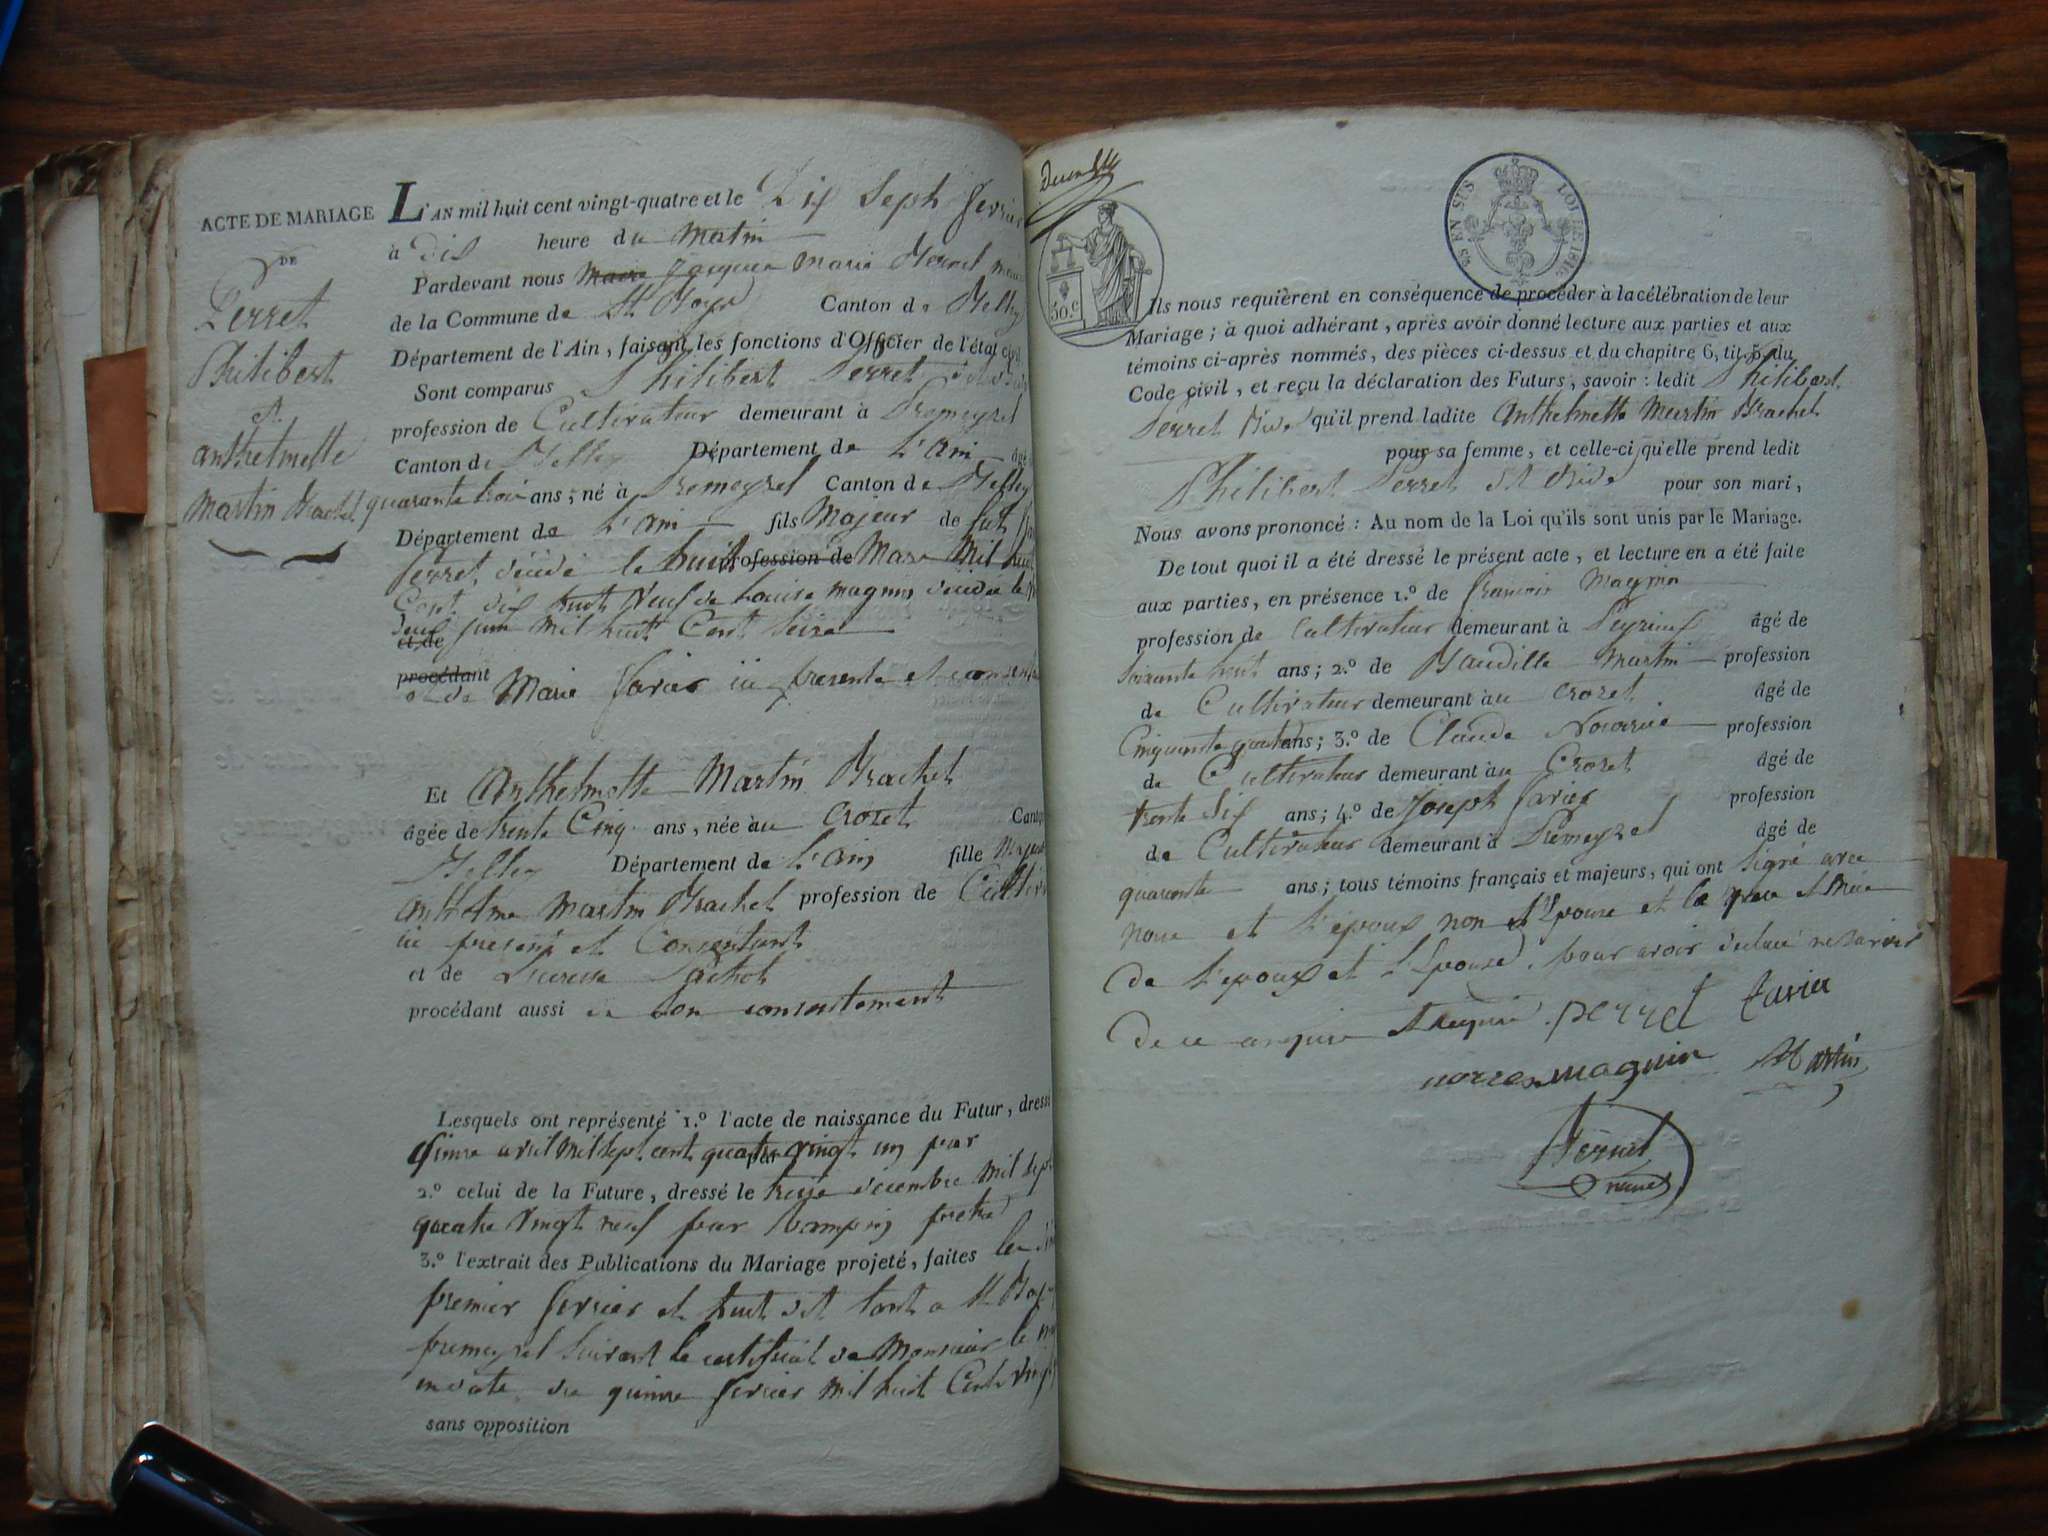 ACTE DE MARIAGE
DE
Perret
Philibert
et
anthelmette
Martin Brachet
L'AN mil huit cent vingt-quatre et le Dix Sept fevrier
à dix heure du Matin
Pardevant nous Maire Jacques Marie
de la Commune de St Canton de Belley
Département de l'Ain, faisant les fonctions d'Officier de l'état civil
Sont comparus Philibert Perret
profession de Cultivateur demeurant à Premeyzel
Canton de Belley Département de L'ain âgé
quarante trois ans; né à Premeyzel Canton de Belley
Département de L'ain fils Majeur de fut
Perret, décédé le huit profession de Mars Mil huit
Cent dix neuf de Louise magnin décédée le
deux juin Mil huit Cent Seize
et de
procédant
et de Marie Favier ici presente et
Et Anthelmette Martin Brachet
âgée de trente Cinq ans, née au Crozet Canton
Belley Département de L'ain fille Majeure
anthelme Martin Brachet profession de
ici present et Consentant
et de
procédant aussi de son consentement
Lesquels ont représenté 1.º l'acte de naissance du Futur, dressé
Quinze avril Mil sept cent quatre vingt un par
par
2.º celui de la Future, dressé le treize decembre Mil sept
quatre Vingt neuf par
3.º l'extrait des Publications du Mariage projeté, faites les
premier fevrier et huit dit tant a St
premeyzel Suivant le certificat de Monsieur le
en date du quinze fevrier Mil huit Cent Vingt
sans opposition
EN SUS
LOI DE 1816
50.c
Ils nous requièrent en conséquence de procéder à la célébration de leur
Mariage; à quoi adhérant, après avoir donné lecture aux parties et aux
témoins ci-après nommés, des pièces ci-dessus et du chapitre 6, tit. 5, du
Code civil, et reçu la déclaration des Futurs, savoir: ledit Philibert
Perret qu'il prend ladite Anthelmette Martin Brachet
pour sa femme, et celle-ci qu'elle prend ledit
Philibert Perret pour son mari,
Nous avons prononcé: Au nom de la Loi qu'ils sont unis par le Mariage.
De tout quoi il a été dressé le présent acte, et lecture en a été faite
aux parties, en présence 1.º de françois Magnin
profession de Cultivateur demeurant à Peyrieux âgé de
Soixante ans; 2.º de Martin profession
de Cultivateur demeurant au Crozet âgé de
Cinquante quatre ans; 3.º de Claude profession
de Cultivateur demeurant au Crozet âgé de
trente Six ans; 4.º de Joseph Favier profession
de Cultivateur demeurant à Premeyzel âgé de
quarante ans; tous témoins français et majeurs, qui ont Signé avec
nous et l'epoux non l'Epouse et le pere et Mère
De l'epoux et l'Epouse, pour avoir declaré ne Savoir
De ce enquis et requis. perret favier
magnin Martin